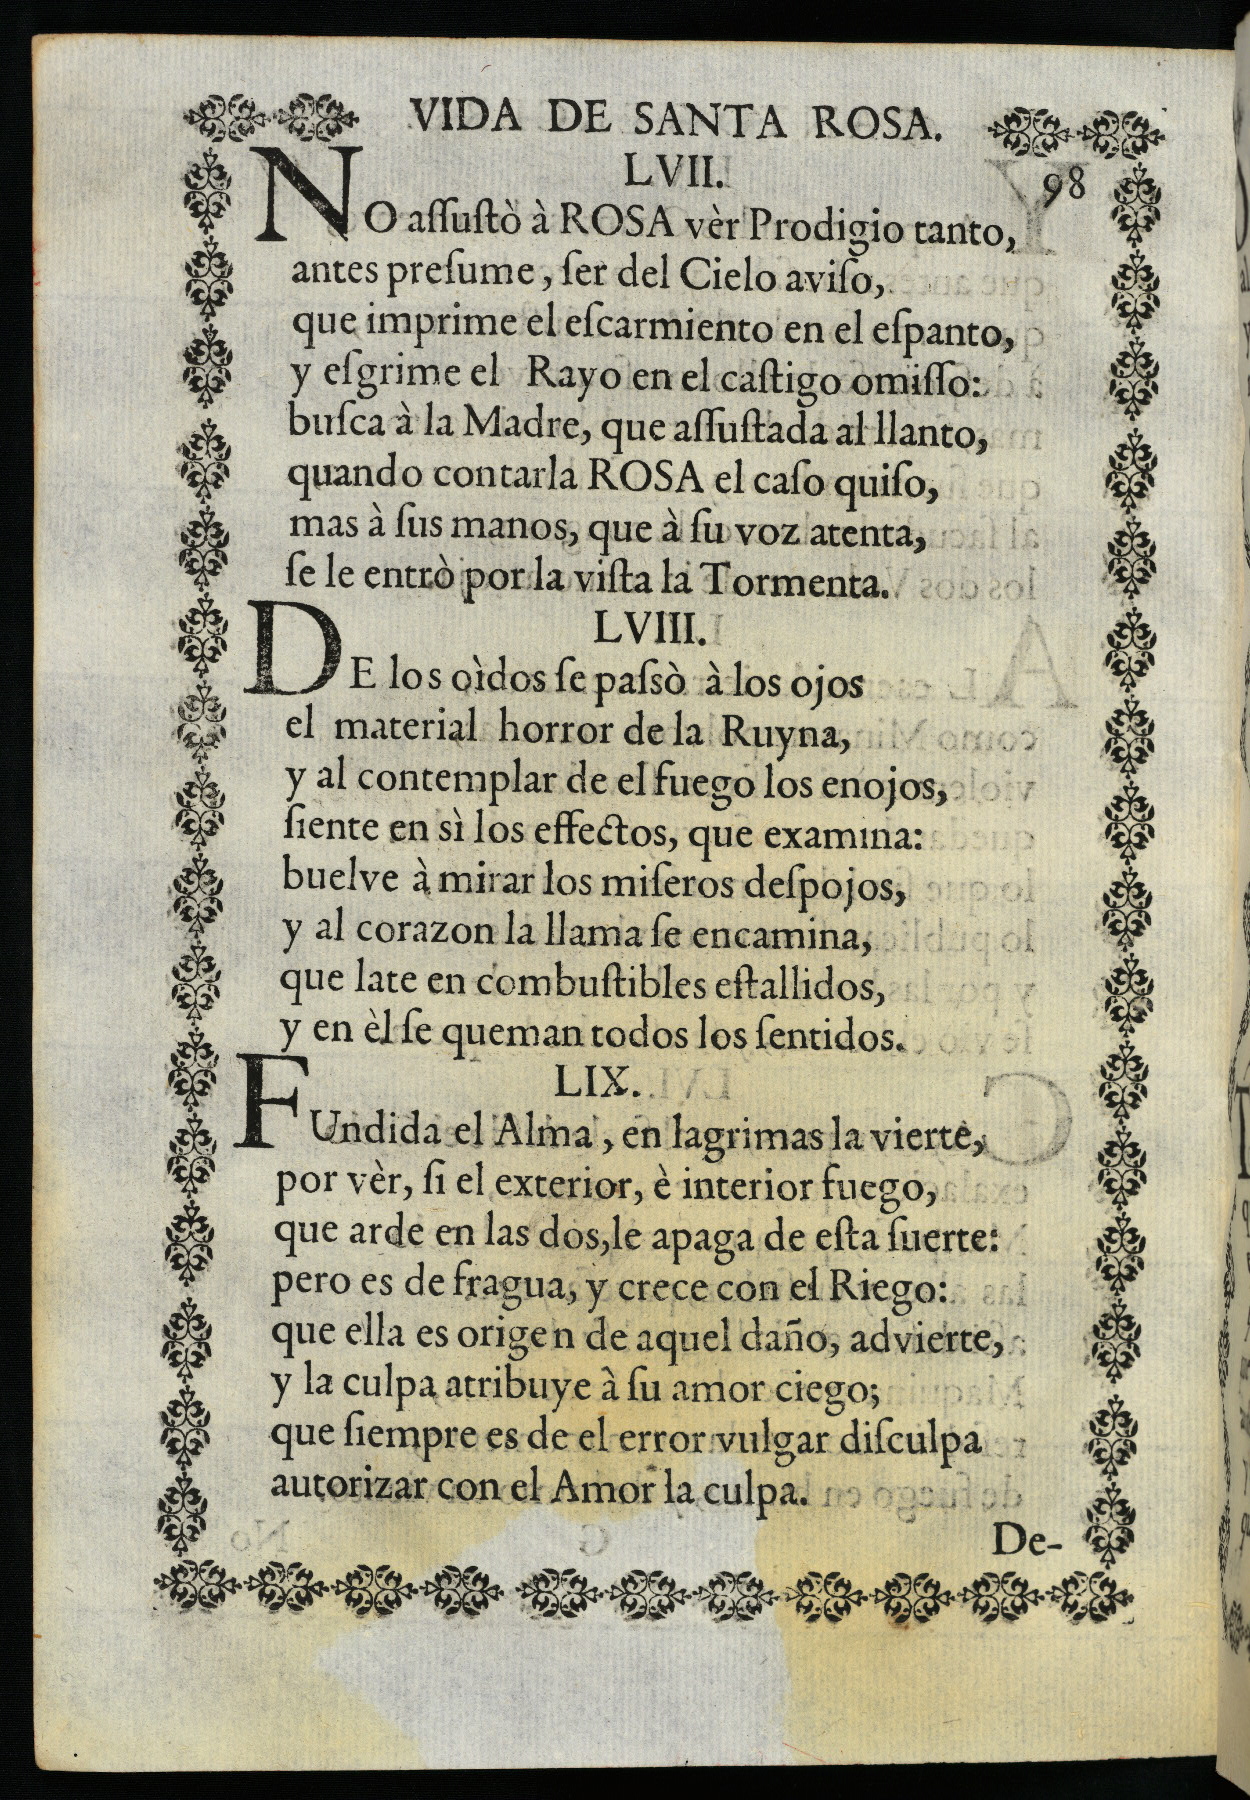 VIDA DE SANTA ROSA.
LVII.
98
NO aſſuſtò à ROSA vèr Prodigio tanto,
antes preſume, ſer del Cielo aviſo,
que imprime el eſcarmiento en el eſpanto,
y eſgrime el Rayo en el caſtigo omiſſo:
buſca à la Madre, que aſſuſtada al llanto,
quando contarla ROSA el caſo quiſo,
mas à ſus manos, que à ſu voz atenta,
ſe le entrò por la viſta la Tormenta.
LVIII.
DE los oìdos ſe paſsò à los ojos
el material horror de la Ruyna,
y al contemplar de el fuego los enojos,
ſiente en sì los effectos, que examina:
buelve à mirar los miſeros deſpojos,
y al corazon la llama ſe encamina,
que late en combuſtibles eſtallidos,
y en èl ſe queman todos los ſentidos.
LIX.
FUndida el Alma, en lagrimas la vierte,
por vèr, ſi el exterior, è interior fuego,
que arde en las dos,le apaga de eſta ſuerte:
pero es de fragua, y crece con el Riego:
que ella es origen de aquel daño, advierte,
y la culpa atribuye à ſu amor ciego;
que ſiempre es de el error vulgar diſculpa
autorizar con el Amor la culpa.
De-